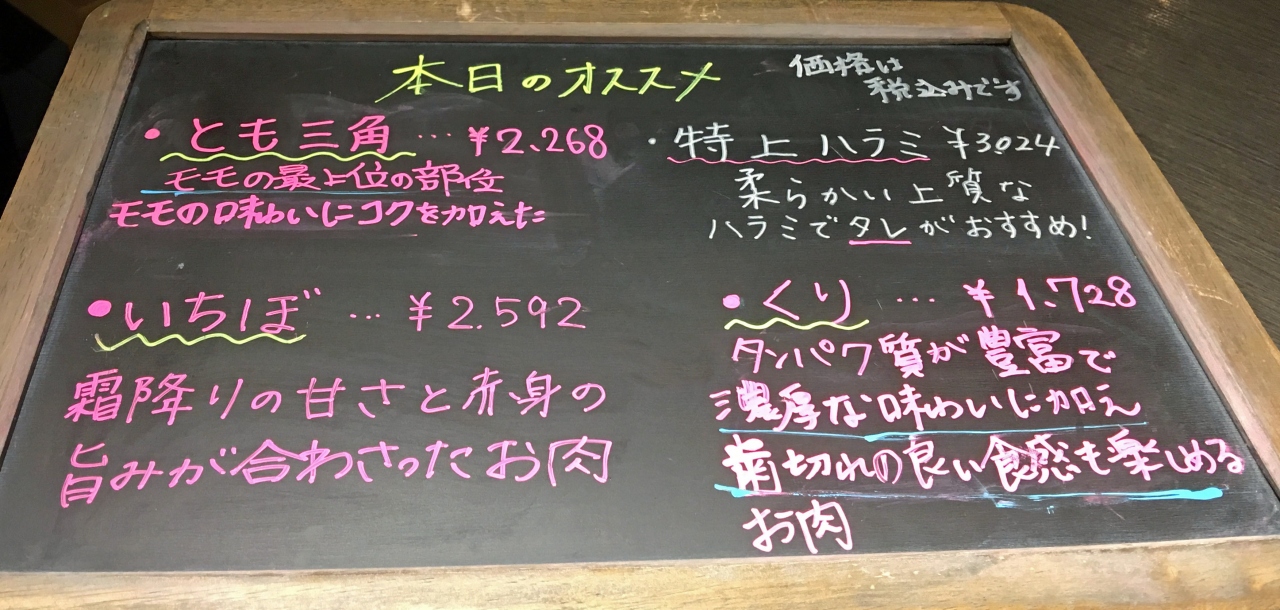 本日のオススメ
価格は
税込みです
・とも三角…¥2.268
モモの最上位の部位
モモの味わいにコクを加えた
・特上ハラミ ¥3.024
柔らかい上質な
ハラミでタレがおすすめ!
・いちぼ…¥2.592
霜降りの甘さと赤身の
旨みが合わさったお肉
・くり…¥1.728
タンパク質が豊富で
濃厚な味わいに加え
歯切れの良い食感も楽しめる
お肉